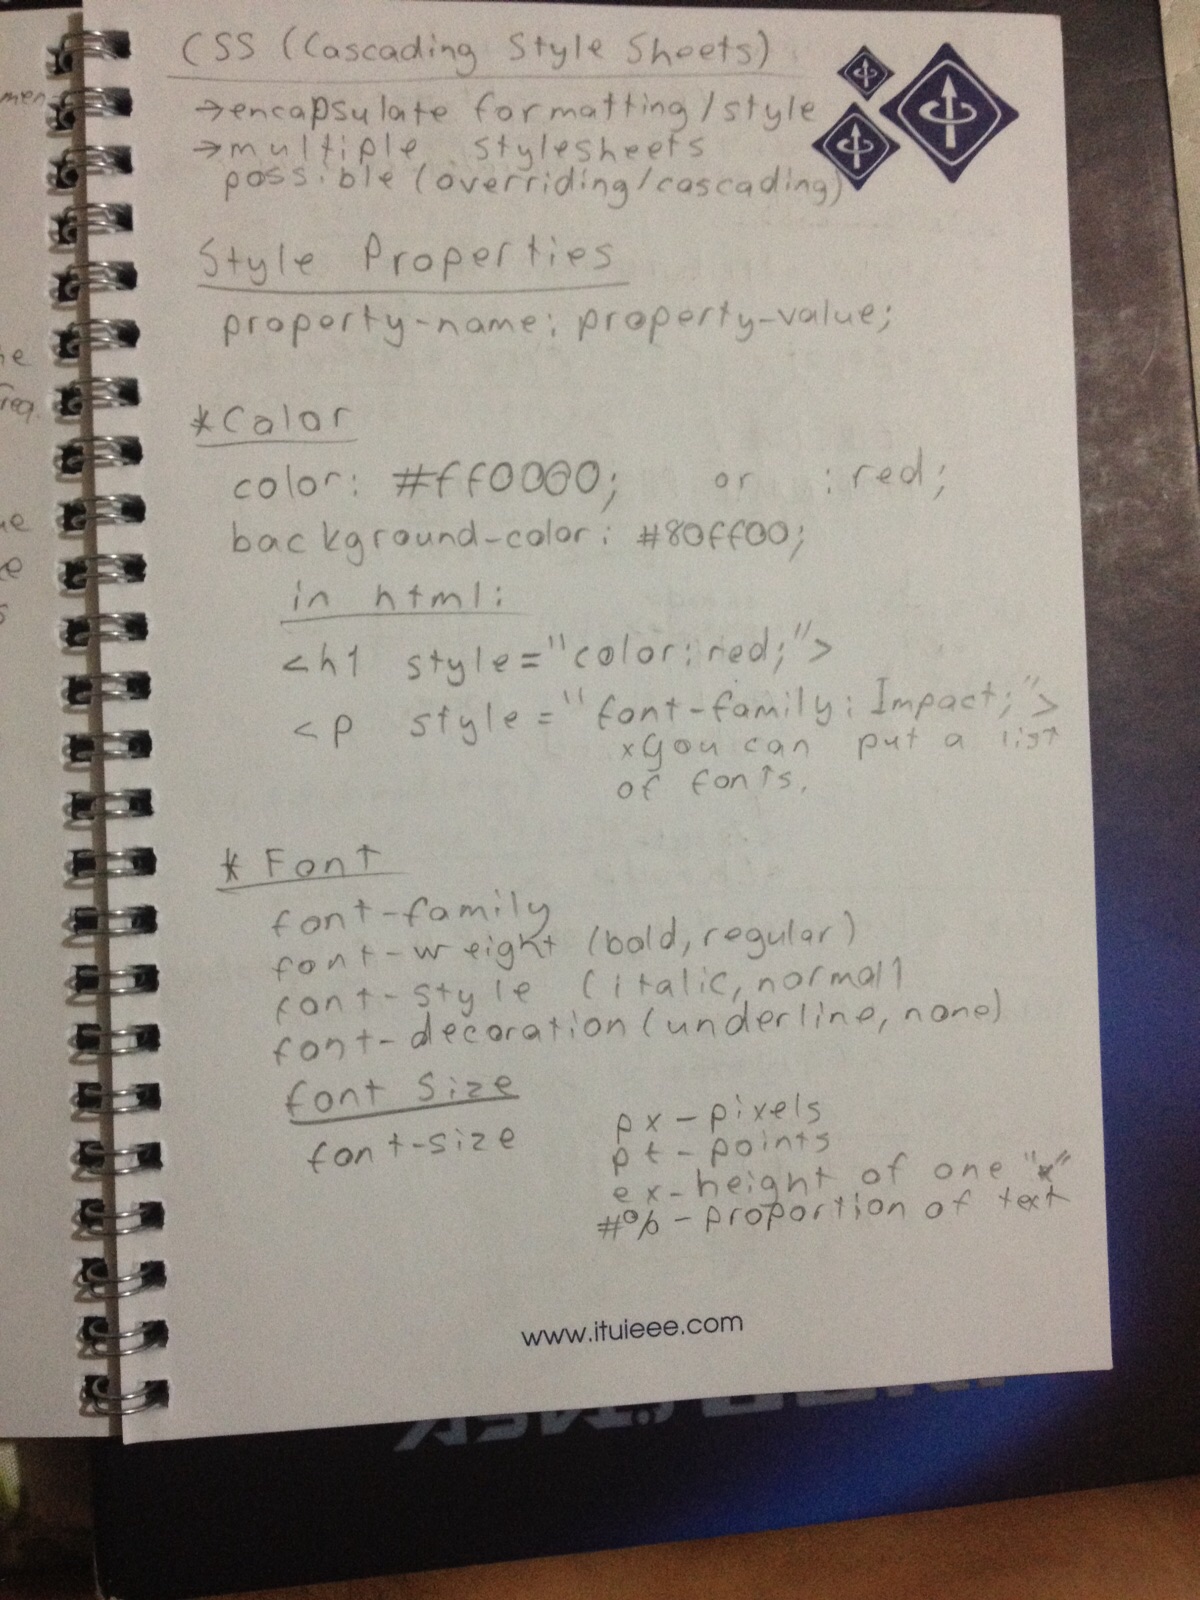 CSS (Cascading Style Sheets)
→encapsulate formatting/style
→multiple stylesheets
possible (overriding/cascading)
Style Properties
property-name: property-value;
*Color
color: #ff0000; or : red;
background-color: #80ff00;
in html:
<h1 style="color: red;">
<p style="font-family: Impact;">
xyou can put a list
of fonts.
*Font
font-family
font-weight (bold, regular)
font-style (italic, normal)
font-decoration (underline, none)
font size
font-size
px - pixels
pt - points
ex - height of one "x"
#% - proportion of text
www.ituieee.com
men
he
freq.